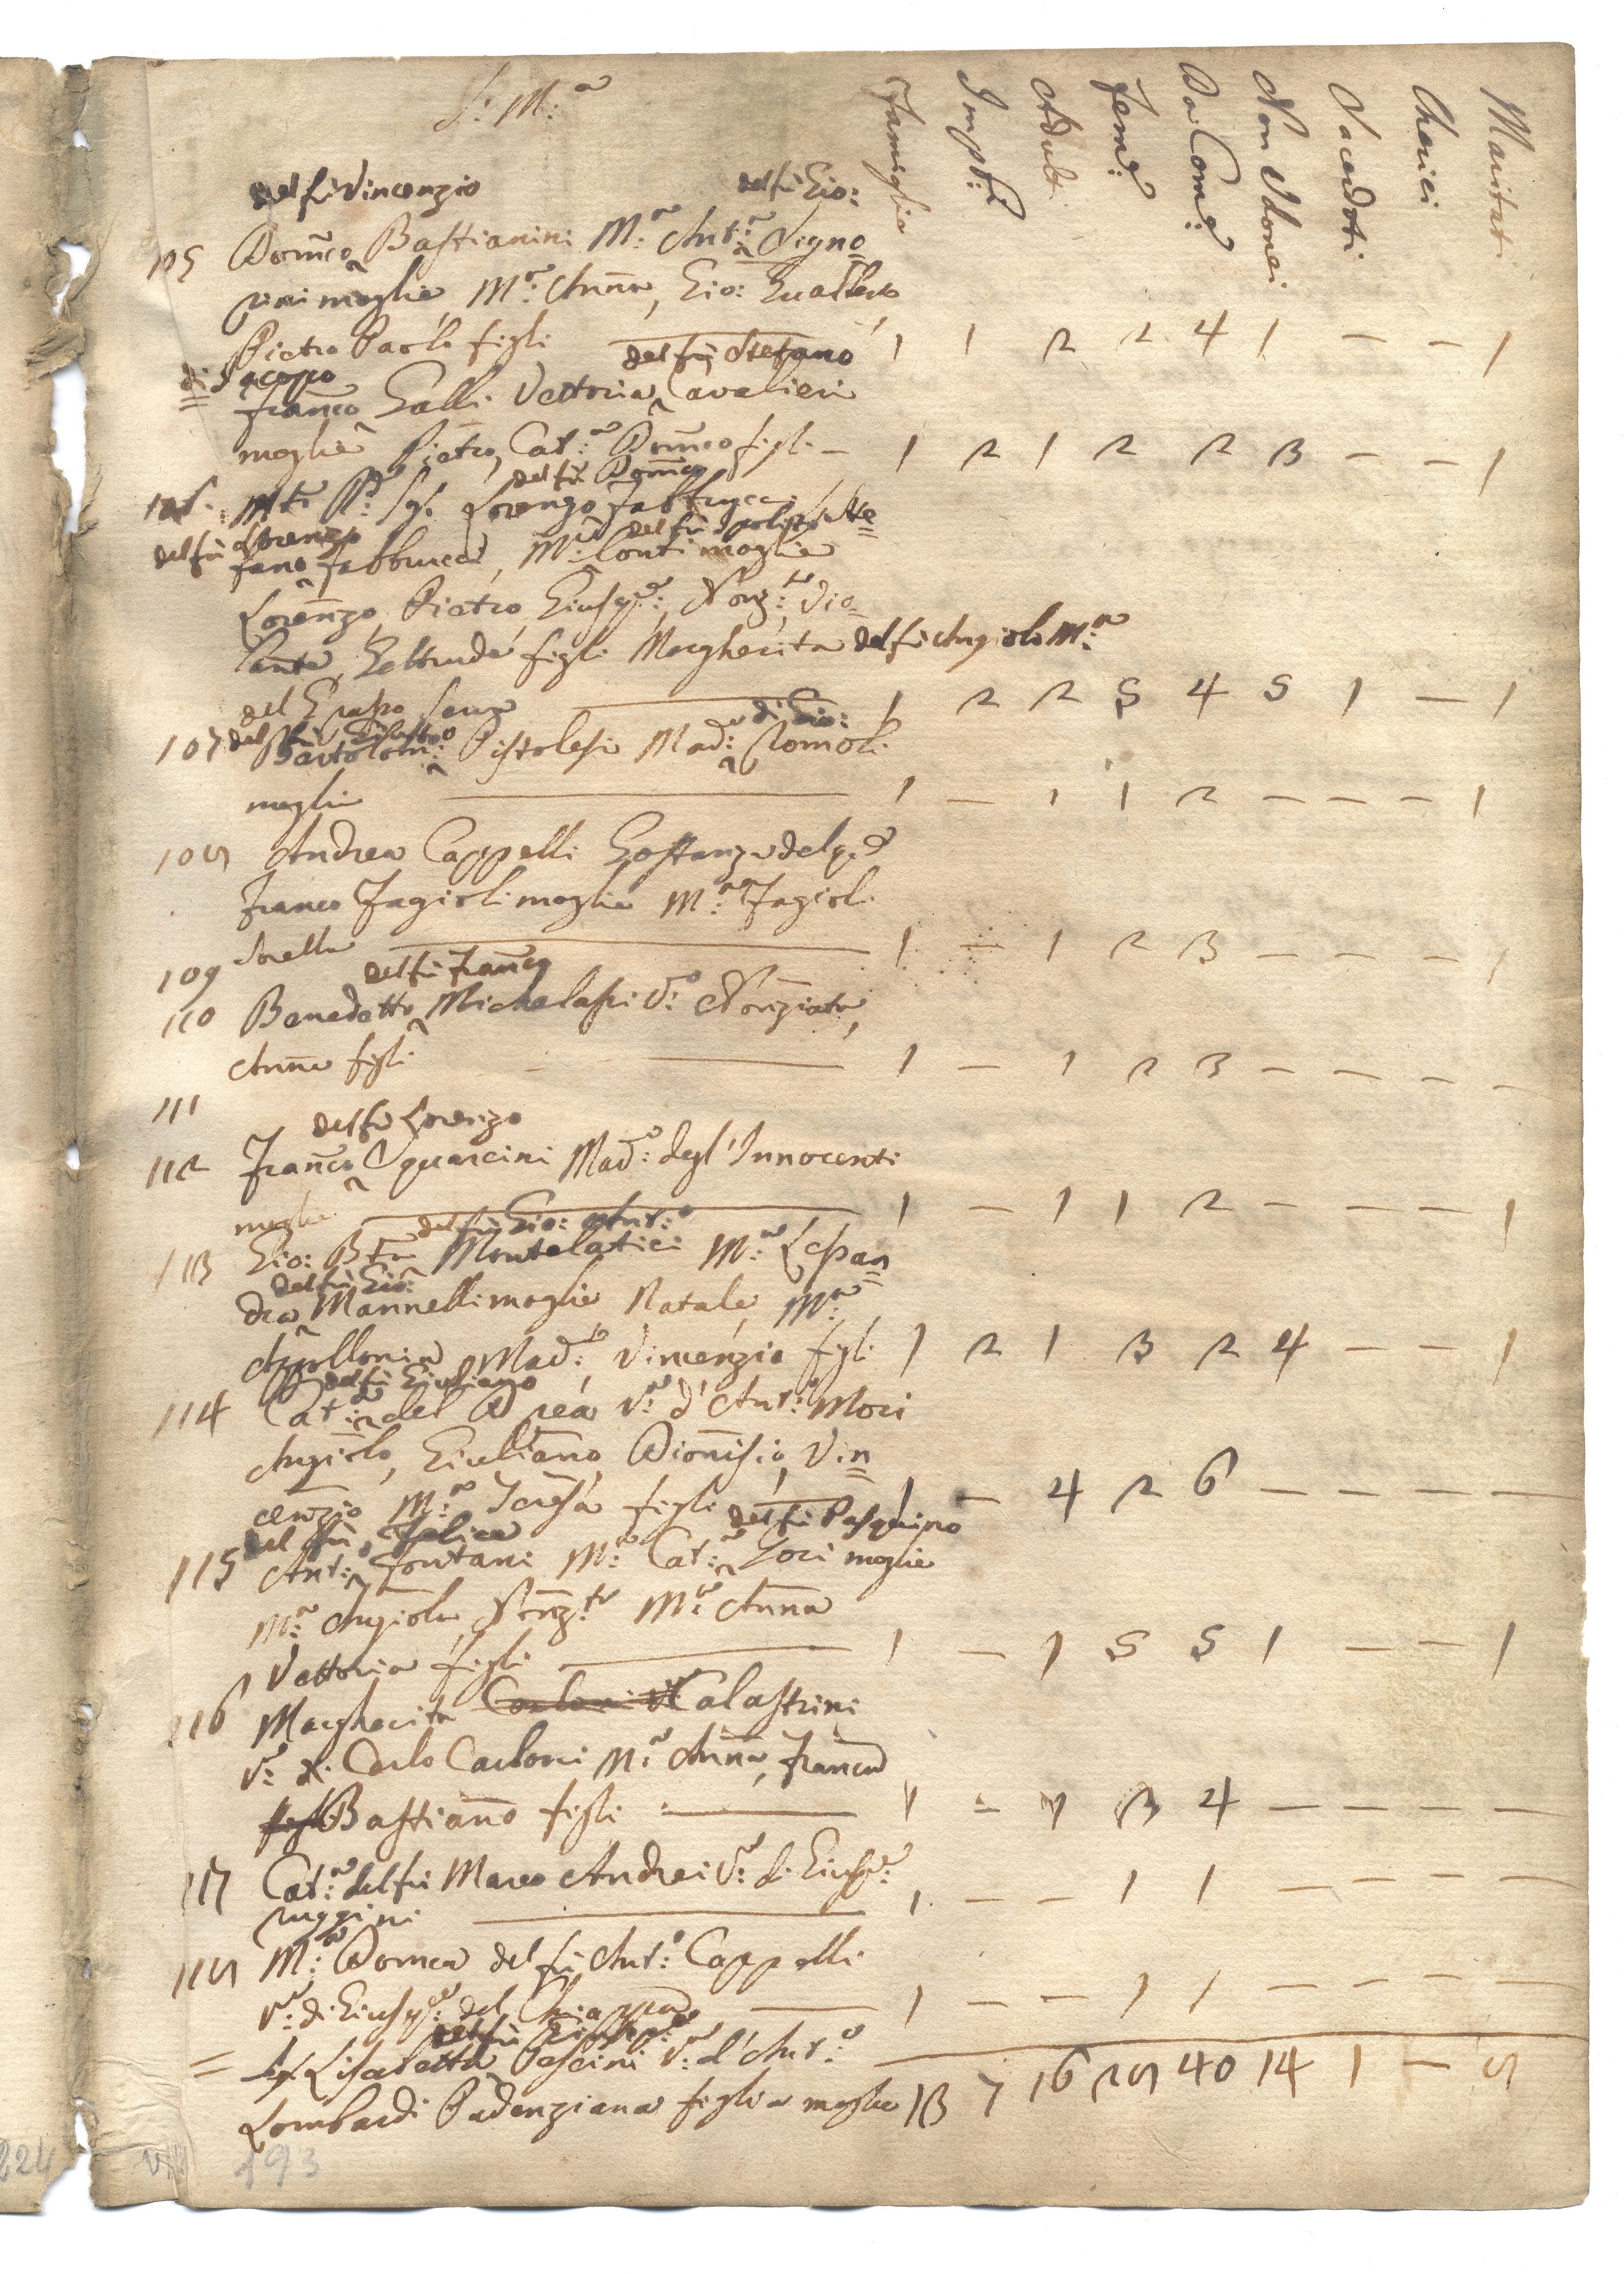 S: M:a
Famiglie Impub: Adult: Fem:e Da Com:e Non Idonei Sacerdoti Cherici Maritati
del fù Vincenzio del fù Gio:
105 Dom̃co Bastianini M:a Ant:a Signo=
rini moglie, M:a Anña, Gio: Gualber
Pietro Paolo figli 1 1 2 2 4 1 — — 1
di Jacopo del fù Stefano
= Frañco Galli Vettoria Cavalieri
moglie Pietro, Cat:a Dom̃co figli — 1 2 1 2 2 3 — — 1
del fù Dom̃co
106. Lorenzo Fabbrucci Ste=
del fù Lorenzo del fù
fano Fabbrucci, M:a Conti moglie
Lorenzo, Pietro, Giusp:e, Nonz:ta, Vio=
lante, Geltrude figli Margherita del fù Angiolo M:a
del Grasso Serva 1 2 2 5 4 5 1 — 1
del fù di Gio:
107 Bartolom: Pistolesi Mad:a Romoli
moglie 1 — 1 1 2 — — — 1
108 Andrea Cappelli Gostanza del q:
Franco Fagioli moglie M:a Fagioli
Sorella 1 — 1 2 3 — — — 1
109
del fù Frañco
110 Benedetto Michelassi V:o Nonziata,
Anña figli 1 — 1 2 3 — — — —
111
del fù Lorenzo
112 Frañco Squarcini Mad:a degl'Innocenti
moglie 1 — 1 1 2 — — — 1
del fù Gio: Ant:o
113 Gio: Bta Montelatici M:a Lessan=
del fù Gio:
dra Mannelli moglie Natale, M:a
Apollonia Mad:a, Vincenzio figli 1 2 1 3 2 4 — — 1
del fù Giuliano
114 Cat:a del Drea V:a d'Ant:o Mori
Angiolo, Giuliano, Dionisio, Vin=
cenzio M:a Teresa figli 1 — 4 2 6 — — — —
del fù Felice del fù Pasquino
115 Ant:o Fontani M:a Cat:a Gori moglie
M:a Angiola, Nonz:ta M:a Anna
Vettoria figli 1 — 1 5 5 1 — — 1
116 Margherita Carloni V: Calastrini
V:a di Carlo Carloni M:a Anña, Franca
figli Bastiano figli 1 — 1 3 4 — — — —
117 Cat:a del fù Marco Andrei V:a di Giusp:e
Ruggini 1 — — 1 1 — — — —
118 M:a Domca del fù Ant:o Cappelli
V:a di Giusp:e del Chiappa 1 — — 1 1 — — — —
del fù Giusep:e
= Lisabetta Pescini V:a d'Ant:o
Lombardi Padenziana figlia moglie 13 7 16 28 40 14 1 — 8
224 193